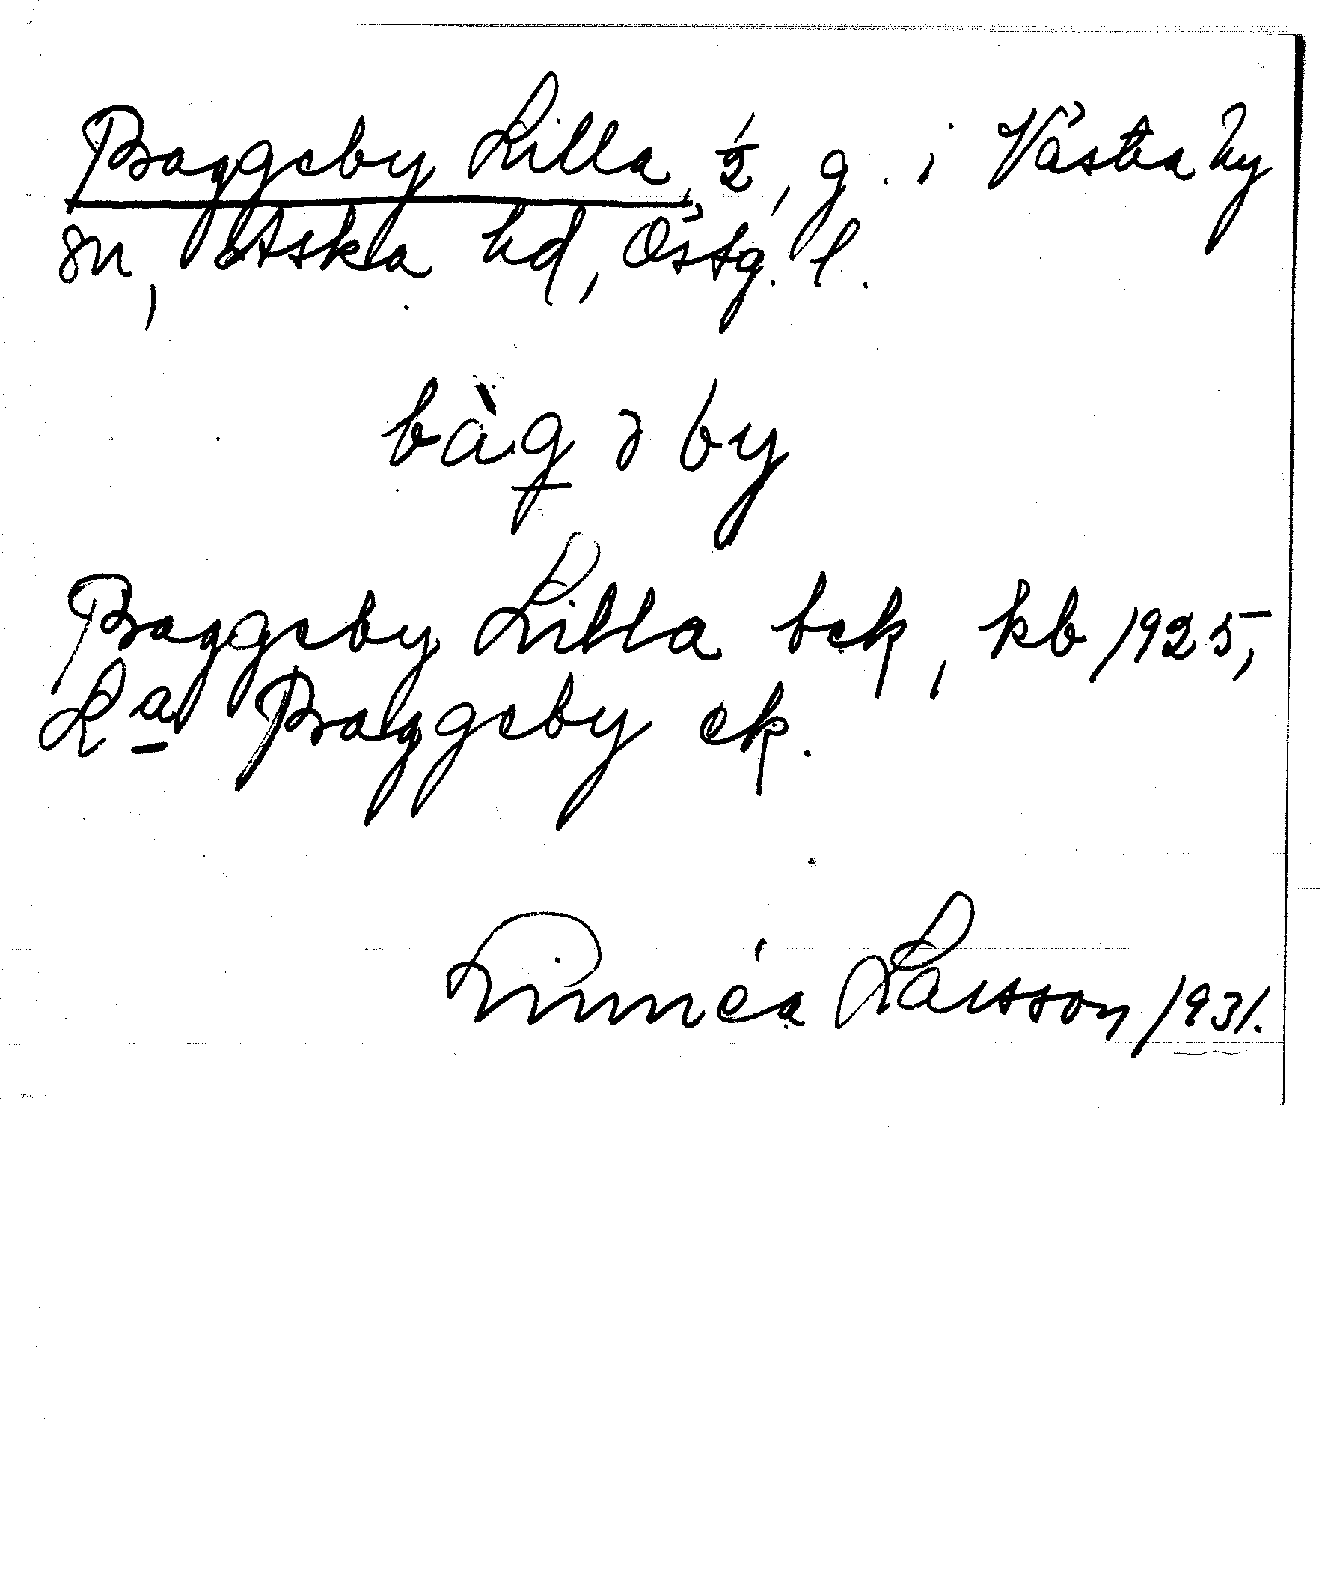 Baggeby Lilla, 1/2, g. i Västra Ny
sn, Aska hd, Östg. l.
bàgəby
Baggeby Lilla bek, kb 1925,
La Baggeby ek.
Linnéa Larsson 1931.